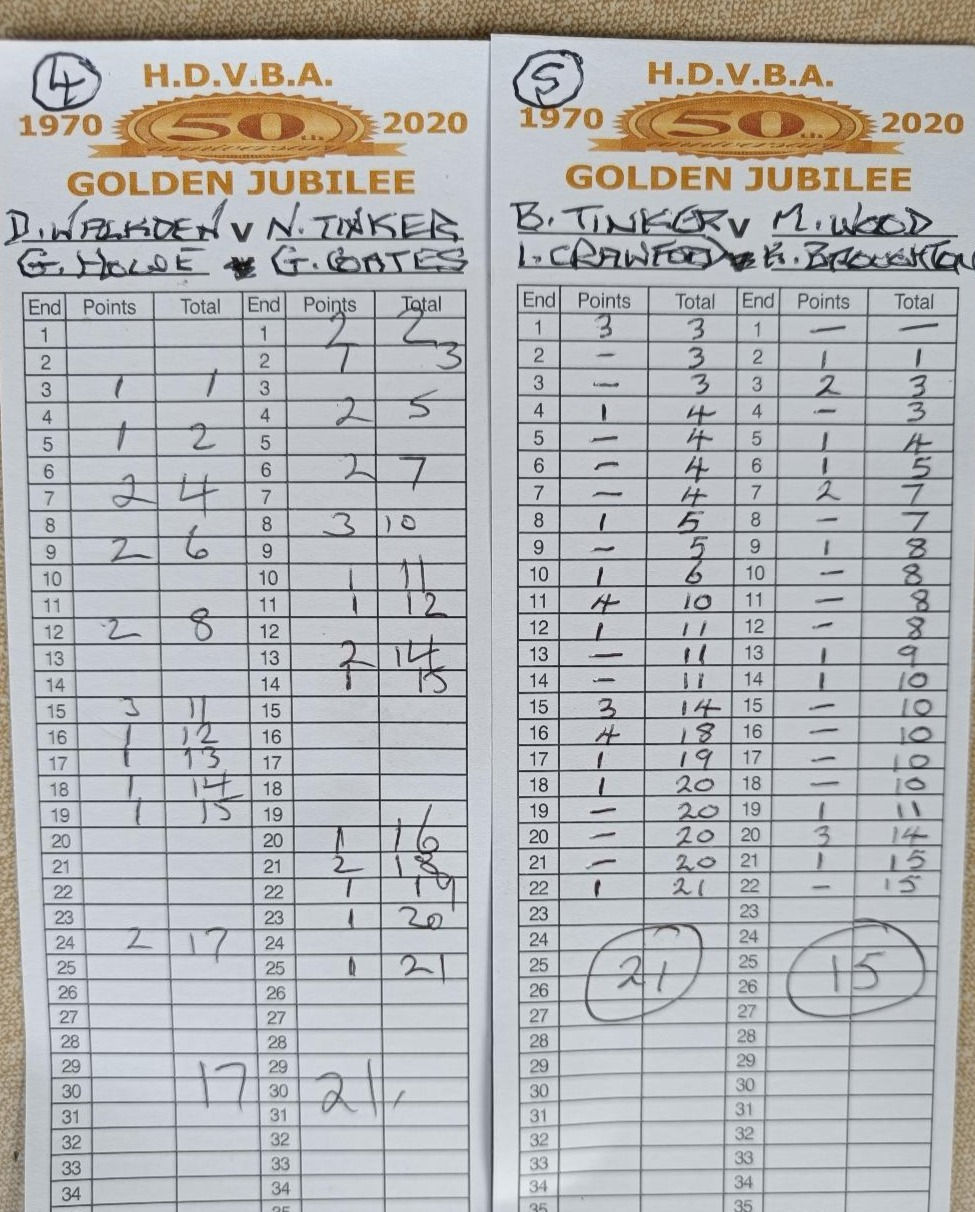 4
H.D.V.B.A.
1970 50th 2020
anniversary
GOLDEN JUBILEE
D. WALKDEN V N. TINKER
G. & G. COATES
End Points Total End Points Total
1 1 2 2
2 2 1 3
3 1 1 3
4 4 2 5
5 1 2 5
6 6 2 7
7 2 4 7
8 8 3 10
9 2 6 9
10 10 1 11
11 11 1 12
12 2 8 12
13 13 2 14
14 14 1 15
15 3 11 15
16 1 12 16
17 1 13 17
18 1 14 18
19 1 15 19
20 20 1 16
21 21 2 18
22 22 1 19
23 23 1 20
24 2 17 24
25 25 1 21
26 26
27 27
28 28
29 29
30 17 30 21
31 31
32 32
33 33
34 34
35
5
H.D.V.B.A.
1970 50th 2020
anniversary
GOLDEN JUBILEE
B. TINKER V M. WOOD
I. CRAWFORD & K. BROUGHTON
End Points Total End Points Total
1 3 3 1 — —
2 – 3 2 1 1
3 — 3 3 2 3
4 1 4 4 – 3
5 — 4 5 1 4
6 – 4 6 1 5
7 — 4 7 2 7
8 1 5 8 – 7
9 – 5 9 1 8
10 1 6 10 – 8
11 4 10 11 – 8
12 1 11 12 – 8
13 — 11 13 1 9
14 – 11 14 1 10
15 3 14 15 – 10
16 4 18 16 — 10
17 1 19 17 — 10
18 1 20 18 — 10
19 – 20 19 1 11
20 – 20 20 3 14
21 – 20 21 1 15
22 1 21 22 – 15
23 23
24 24
25 21 25 15
26 26
27 27
28 28
29 29
30 30
31 31
32 32
33 33
34 34
35 35